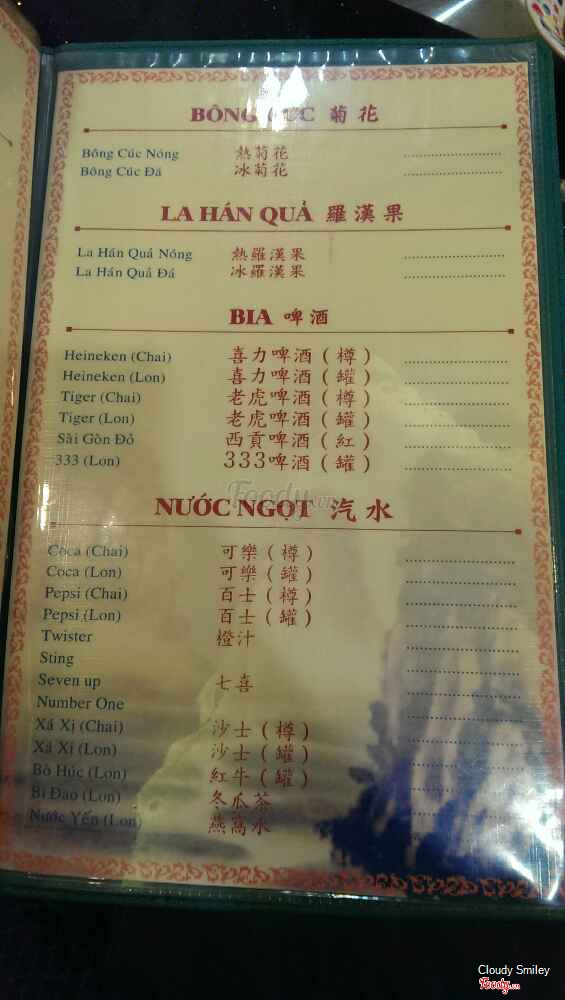 BÔNG CÚC 菊花
Bông Cúc Nóng 熱菊花
Bông Cúc Đá 冰菊花
LA HÁN QUẢ 羅漢果
La Hán Quả Nóng 熱羅漢果
La Hán Quả Đá 冰羅漢果
BIA 啤酒
Heineken (Chai) 喜力啤酒(樽)
Heineken (Lon) 喜力啤酒(罐)
Tiger (Chai) 老虎啤酒(樽)
Tiger (Lon) 老虎啤酒(罐)
Sài Gòn Đỏ 西貢啤酒(紅)
333 (Lon) 333啤酒(罐)
NƯỚC NGỌT 汽水
Coca (Chai) 可樂(樽)
Coca (Lon) 可樂(罐)
Pepsi (Chai) 百士(樽)
Pepsi (Lon) 百士(罐)
Twister 橙汁
Sting
Seven up 七喜
Number One
Xá Xị (Chai) 沙士(樽)
Xá Xị (Lon) 沙士(罐)
Bò Húc (Lon) 紅牛(罐)
Bí Đao (Lon) 冬瓜茶
Nước Yến (Lon) 燕窩水
Foody.vn
Cloudy Smiley
Foody.vn